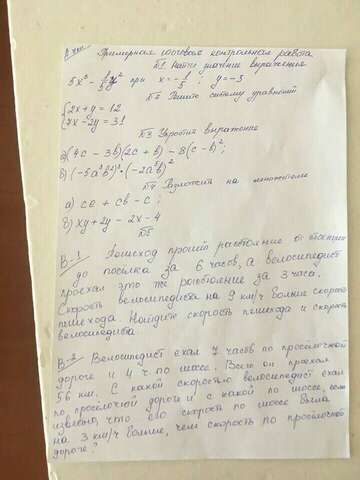 Примерная итоговая контрольная работа
№1 Найти значение выражения
при x = -1/5 ; y = -3
№2 Решите систему уравнений
2x + y = 12
7x - 2y = 31
№3 Упростить выражение
а) (4c - 3b)(2c + b) - 8(c - b)²;
№4 Разложить на множители
а) ca + cb - c;
б) xy + 2y - 2x - 4
№5
В-1 Пешеход прошёл расстояние от станции
до посёлка за 6 часов, а велосипедист
проехал это же расстояние за 3 часа.
Скорость велосипедиста на 9 км/ч больше скорости
пешехода. Найдите скорость пешехода и скорость
велосипедиста.
В-2 Велосипедист ехал 7 часов по просёлочной
дороге и 4 ч по шоссе. Всего он проехал
56 км. С какой скоростью велосипедист ехал
по просёлочной дороге и с какой по шоссе, если
известно, что его скорость по шоссе была
на 3 км/ч больше, чем скорость по просёлочной
дороге?